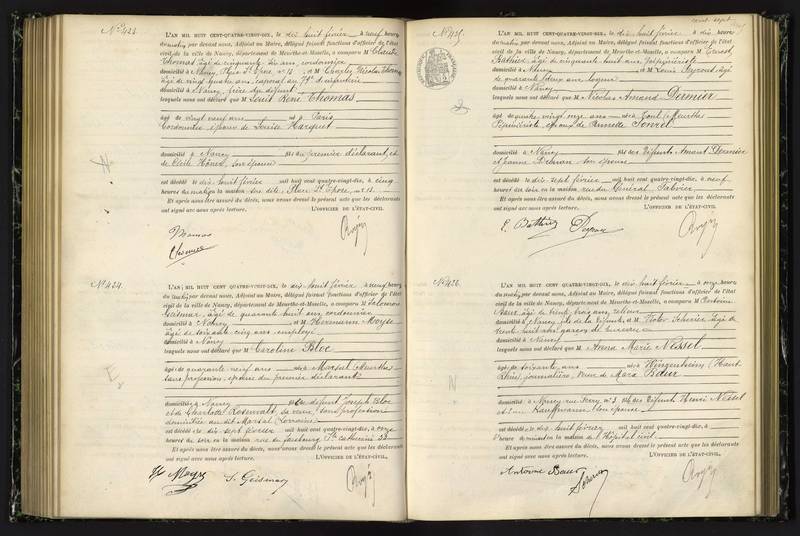 No 423.
L'AN MIL HUIT CENT QUATRE-VINGT-DIX, le dix huit février à neuf heures
du matin par devant nous, Adjoint au Maire, délégué faisant fonctions d'officier de l'état
civil de la ville de Nancy, département de Meurthe-et-Moselle, a comparu M Claude
Thomas, âgé de cinquante six ans, cordonnier
domicilié à Nancy, place St Epvre no 13 et M Charles Nicolas Thomas
âgé de vingt quatre ans, caporal au d'infanterie
domicilié à Nancy, frère du défunt
lesquels nous ont déclaré que M Louis René Thomas
âgé de vingt neuf ans né à Paris
Cordonnier, époux de Louise Harquet
domicilié à Nancy fils du premier déclarant, et
de Cécile son épouse
est décédé le dix huit février mil huit cent quatre-vingt-dix, à cinq
heures du matin en la maison sise dite Place St Epvre, no 13
Et après nous être assuré du décès, nous avons dressé le présent acte que les déclarants
ont signé avec nous après lecture. L'OFFICIER DE L'ÉTAT-CIVIL.
Thomas
No 424.
L'AN MIL HUIT CENT QUATRE-VINGT-DIX, le dix huit février à neuf heures
du matin par devant nous, Adjoint au Maire, délégué faisant fonctions d'officier de l'état
civil de la ville de Nancy, département de Meurthe-et-Moselle, a comparu M Salomon
Geismar, âgé de quarante huit ans, cordonnier
domicilié à Nancy et M Hermann
âgé de soixante cinq ans, employé
domicilié à Nancy
lesquels nous ont déclaré que M Caroline Bloc
âgée de quarante neuf ans née à Marsal (Meurthe)
sans profession, épouse du premier déclarant
domiciliée à Nancy fille de défunt Joseph Bloc
et de Charlotte Rosenvalt, sa veuve, sans profession
domiciliée au dit Marsal (Lorraine)
est décédée le dix sept février mil huit cent quatre-vingt-dix, à onze
heures du soir en la maison rue du faubourg Ste Catherine 33
Et après nous être assuré du décès, nous avons dressé le présent acte que les déclarants
ont signé avec nous après lecture. L'OFFICIER DE L'ÉTAT-CIVIL.
S. Geismar
cent sept
No 425.
L'AN MIL HUIT CENT QUATRE-VINGT-DIX, le dix huit février à dix heures
du matin par devant nous, Adjoint au Maire, délégué faisant fonctions d'officier de l'état
civil de la ville de Nancy, département de Meurthe-et-Moselle, a comparu M Ernest
Bathier, âgé de cinquante huit ans, pépiniériste
domicilié à Nancy et M Louis âgé
de quarante cinq ans
domicilié à Nancy
lesquels nous ont déclaré que M Nicolas Amand Dermier
âgé de quatre vingt onze ans né à Toul (Meurthe)
Pépiniériste, époux de
domicilié à Nancy fils des défunts Amant Dermier
et Jeanne son épouse
est décédé le dix sept février mil huit cent quatre-vingt-dix, à neuf
heures du soir en la maison rue du Général Fabvier
Et après nous être assuré du décès, nous avons dressé le présent acte que les déclarants
ont signé avec nous après lecture. L'OFFICIER DE L'ÉTAT-CIVIL.
No 426.
L'AN MIL HUIT CENT QUATRE-VINGT-DIX, le dix huit février à onze heures
du matin par devant nous, Adjoint au Maire, délégué faisant fonctions d'officier de l'état
civil de la ville de Nancy, département de Meurthe-et-Moselle, a comparu M Antoine
Baur, âgé de trente trois ans, relieur
domicilié à Nancy, fils de la défunte, et M Victor Scherrer, âgé de
trente huit ans, garçon de bureau
domicilié à Nancy
lesquels nous ont déclaré que M Anna Marie Nessel
âgée de soixante ans née à (Haut
Rhin) journalière, veuve de Marc Baur
domiciliée à Nancy, rue no 3 fille des défunts Henri Nessel
et Kauffmann son épouse
est décédée le dix huit février mil huit cent quatre-vingt-dix, à
heure du matin en la maison de l'Hôpital civil
Et après nous être assuré du décès, nous avons dressé le présent acte que les déclarants
ont signé avec nous après lecture. L'OFFICIER DE L'ÉTAT-CIVIL.
Antoine Baur